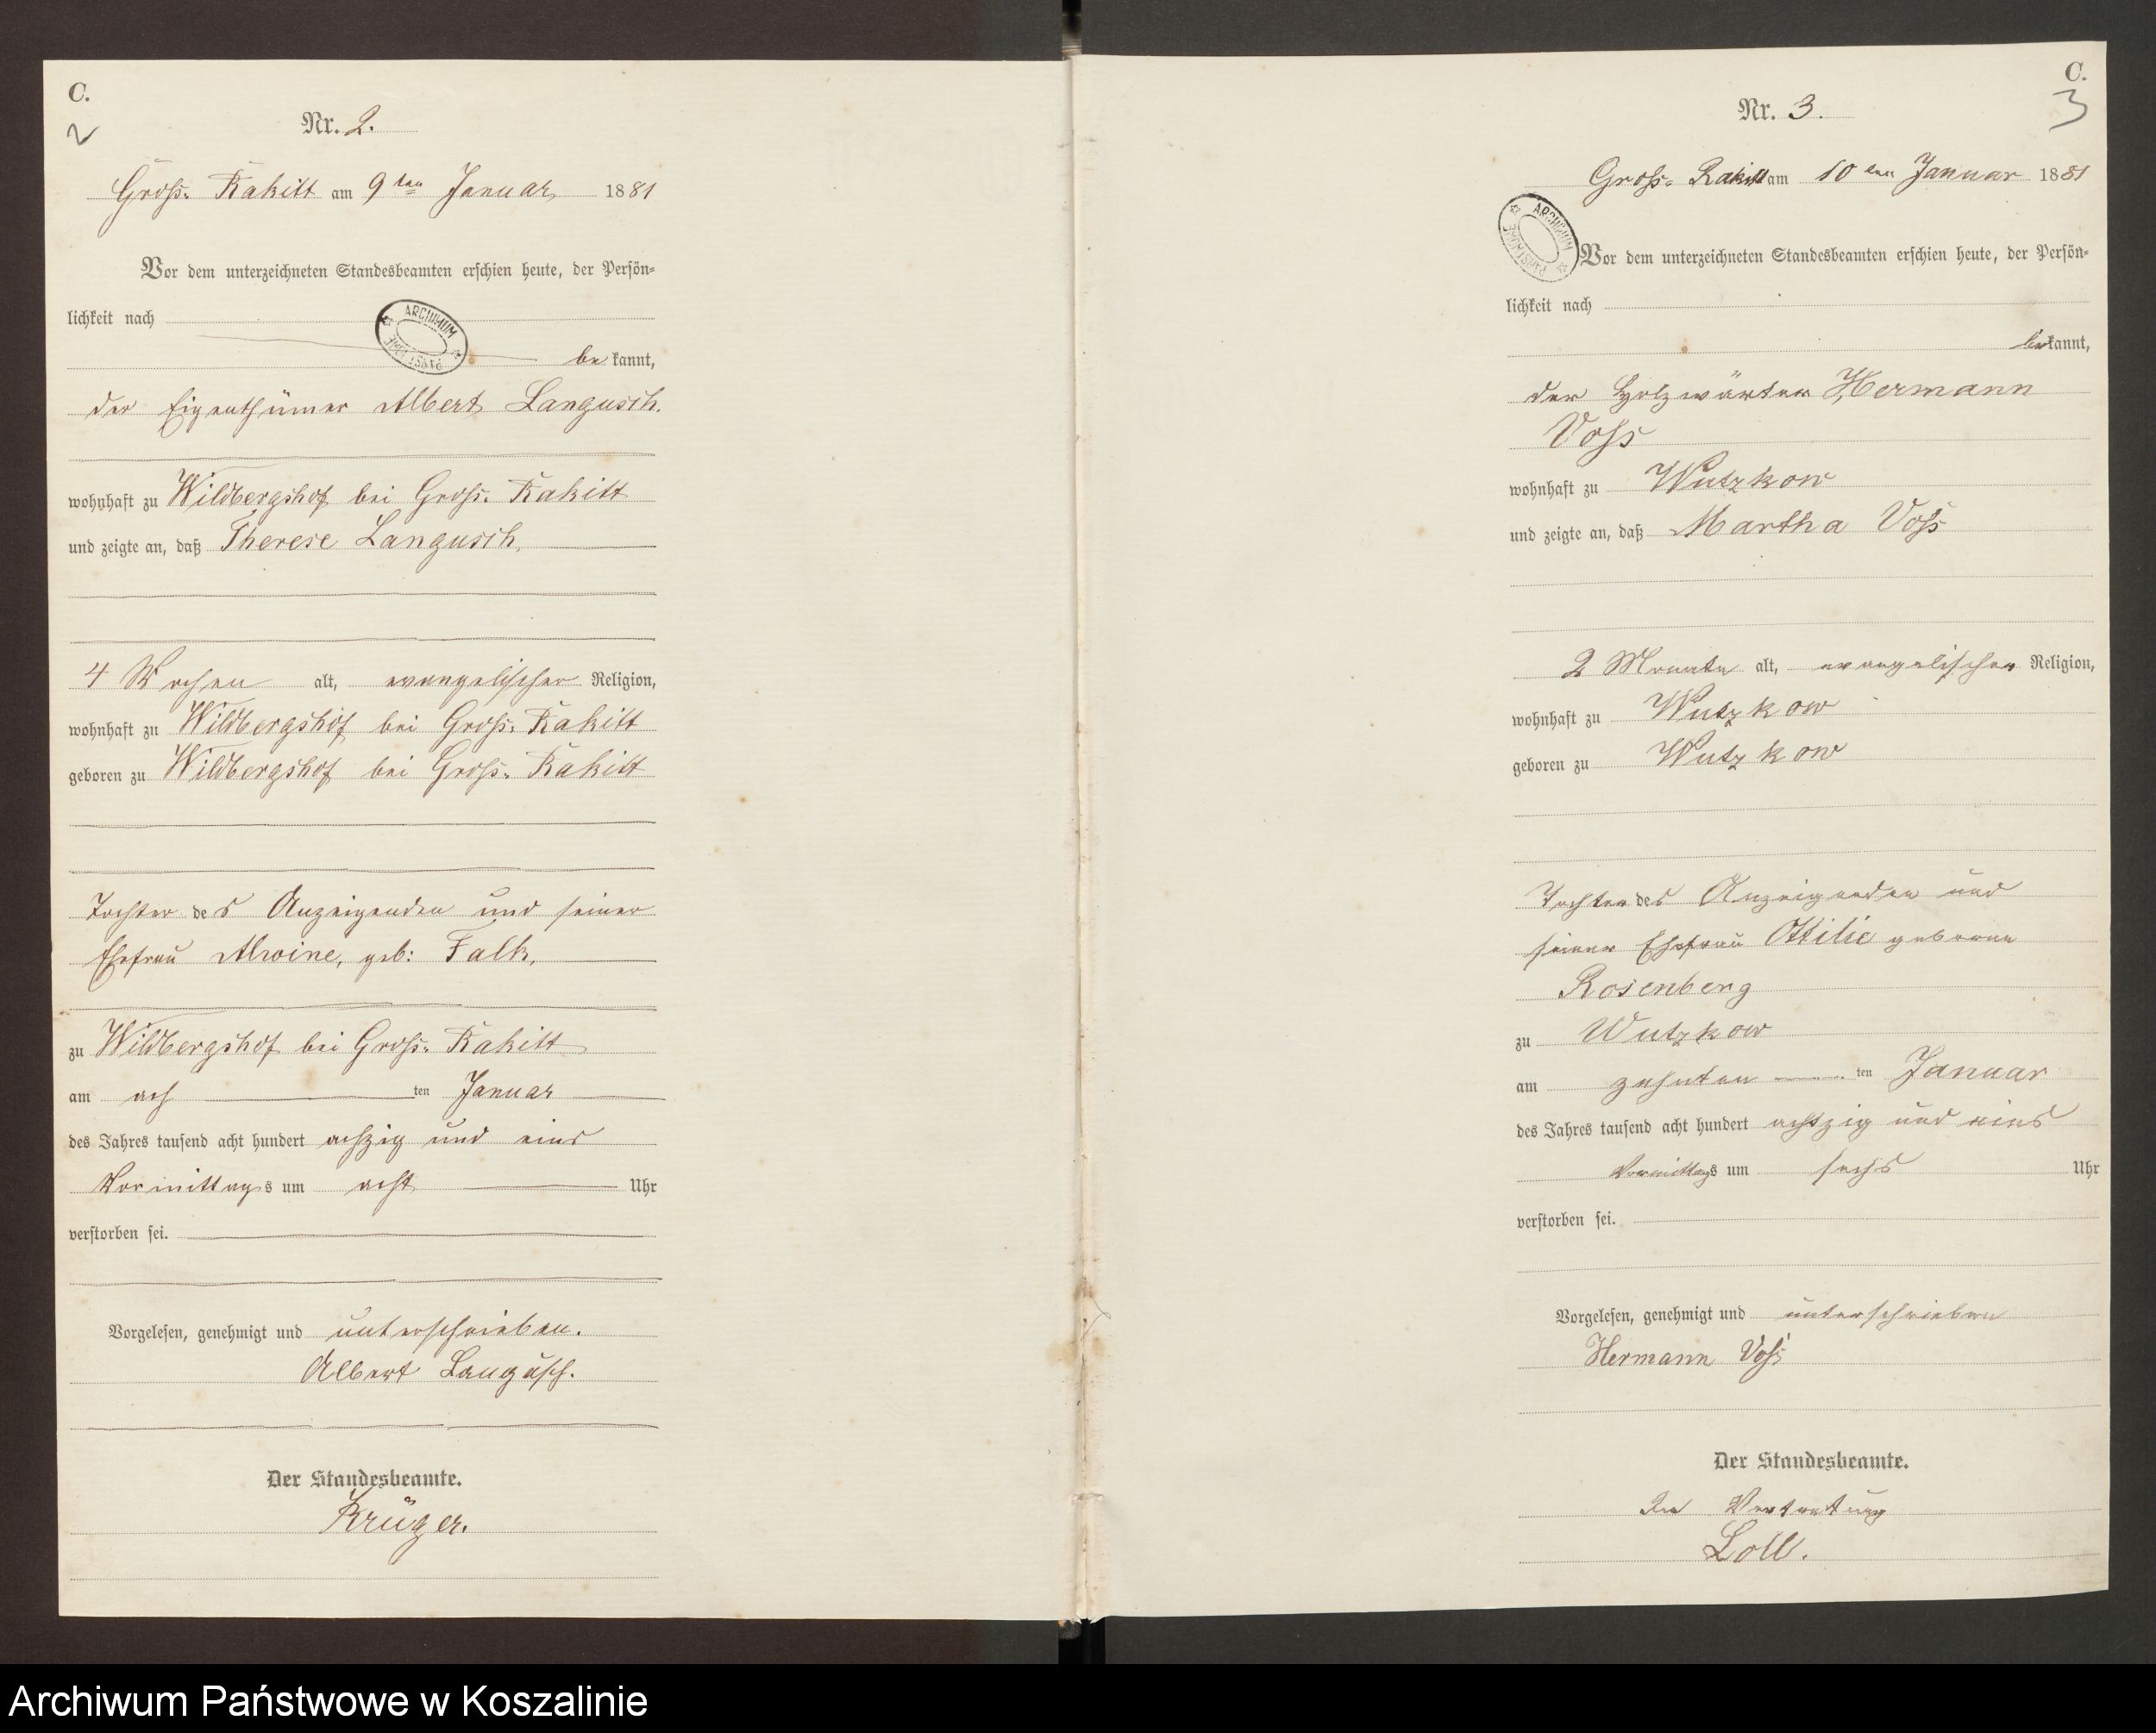 C.
2
Nr. 2.
Groß-Rakitt am 9ten Januar 1881
Vor dem unterzeichneten Standesbeamten erschien heute, der Persön-
lichkeit nach
ARCHIWUM
bekannt,
der Eigenthümer Albert Langusch.
wohnhaft zu Wildbergshof bei Groß-Rakitt
und zeigte an, daß Therese Langusch,
4 Wochen alt, evangelischer Religion,
wohnhaft zu Wildbergshof bei Groß-Rakitt
geboren zu Wildbergshof bei Groß-Rakitt
Tochter des Anzeigenden und seiner
Ehefrau Alwine, geb: Falk,
zu Wildbergshof bei Groß-Rakitt
am ach ten Januar
des Jahres tausend acht hundert achzig und eins
Vormittags um acht Uhr
verstorben sei.
Vorgelesen, genehmigt und unterschrieben.
Albert Langusch.
Der Standesbeamte.
Krüger.
C.
3
Nr. 3.
Groß-Rakitt am 10ten Januar 1881
ARCHIWUM
Vor dem unterzeichneten Standesbeamten erschien heute, der Persön-
lichkeit nach
bekannt,
der Holzwärter Hermann
Voß
wohnhaft zu Wutzkow
und zeigte an, daß Martha Voß
2 Monate alt, evangelischer Religion,
wohnhaft zu Wutzkow
geboren zu Wutzkow
Tochter des Anzeigenden und
seiner Ehefrau Ottilie geborne
Rosenberg
zu Wutzkow
am zehnten ten Januar
des Jahres tausend acht hundert achtzig und eins
Vormittags um sechs Uhr
verstorben sei.
Vorgelesen, genehmigt und unterschrieben
Hermann Voß
Der Standesbeamte.
In Vertretung
Loll.
Archiwum Państwowe w Koszalinie